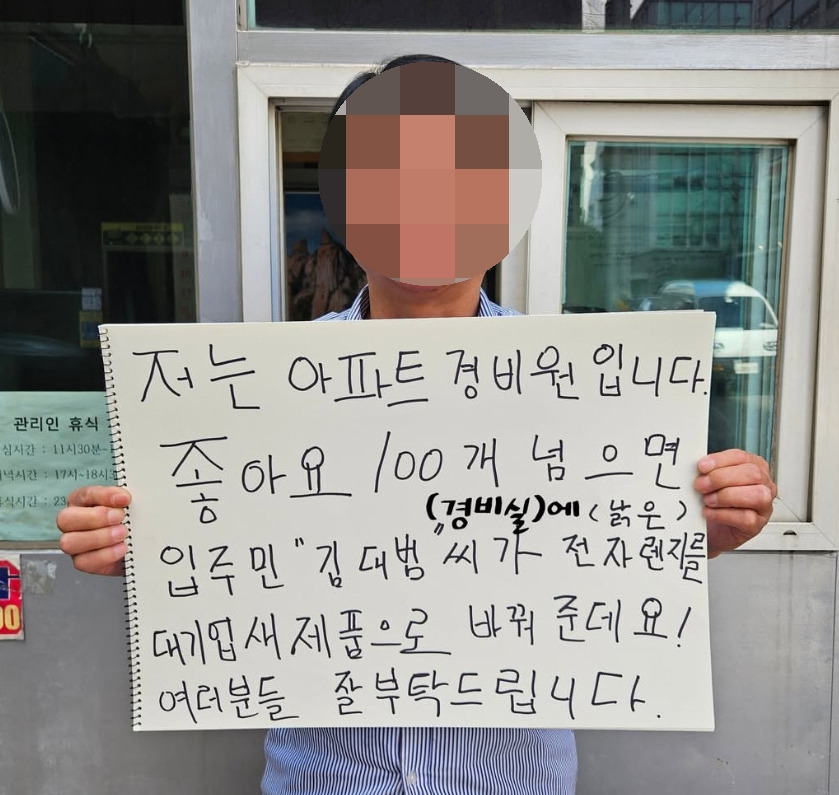 저는 아파트 경비원입니다.
좋아요 100개 넘으면
(경비실)에 (낡은)
입주민 "김대범"씨가 전자렌지를
대기업 새제품으로 바꿔 준데요!
여러분들 잘 부탁드립니다.
관리인 휴식
심시간 : 11시30분~
녁시간 : 17시~18시3
휴식시간 : 23
00